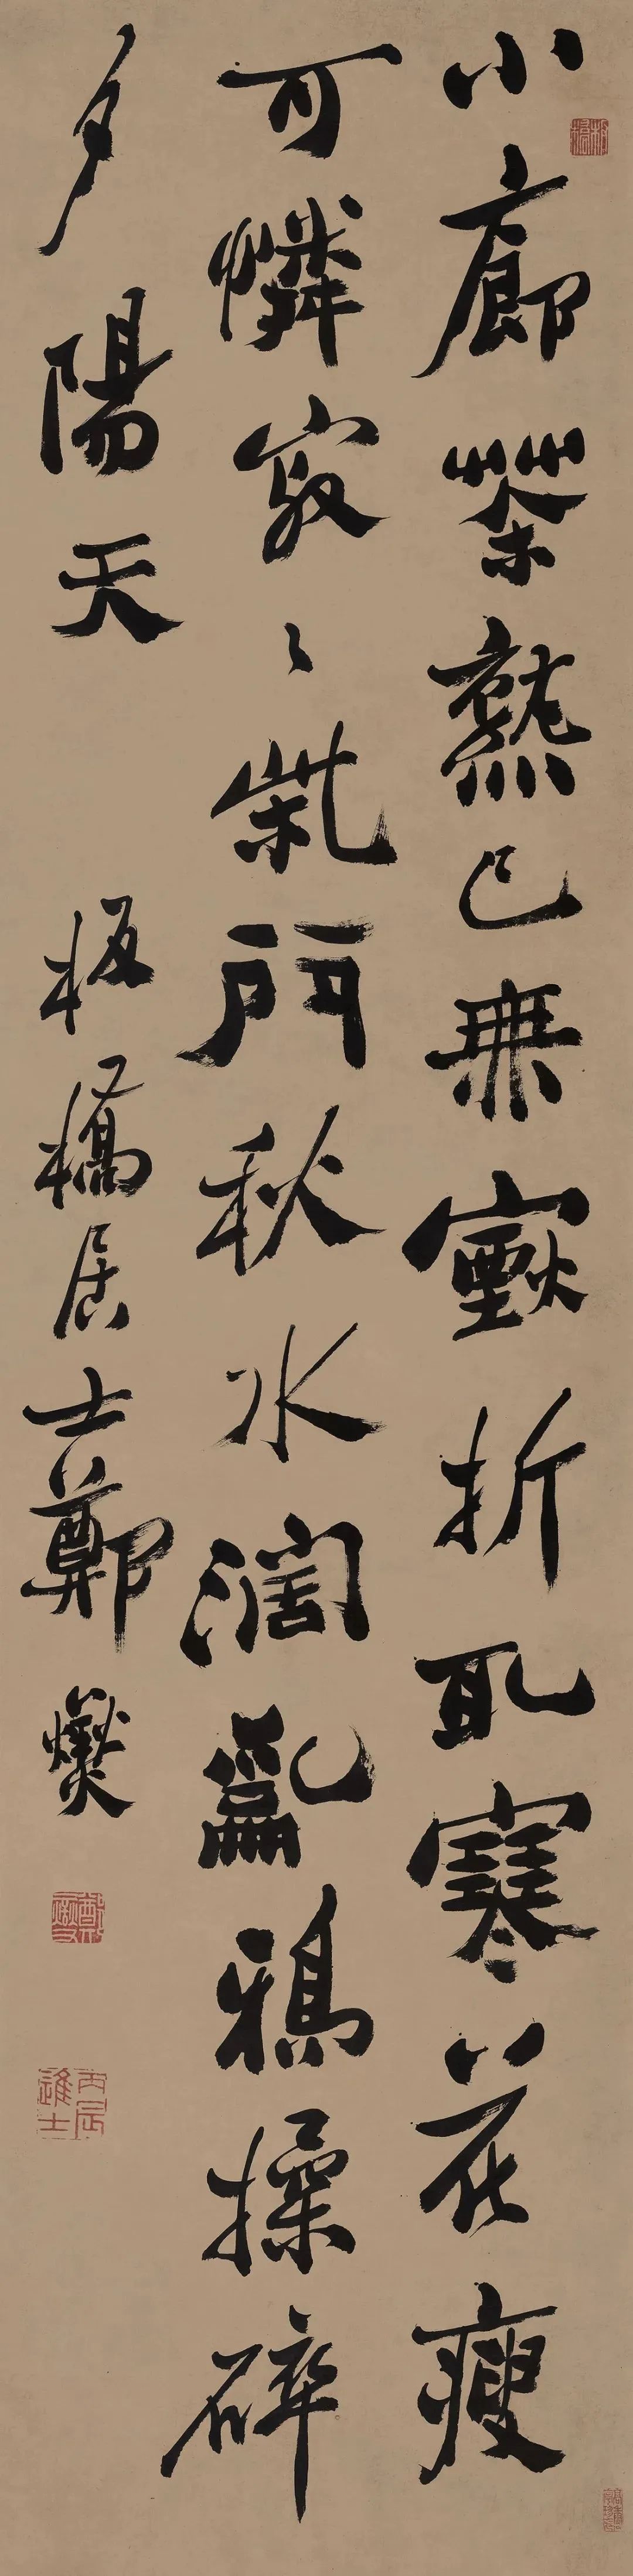 小廊茶熟已無煙折取寒花瘦
可憐寂〻柴門秋水闊亂鴉操碎
夕陽天
板橋居士鄭燮
丙辰進士